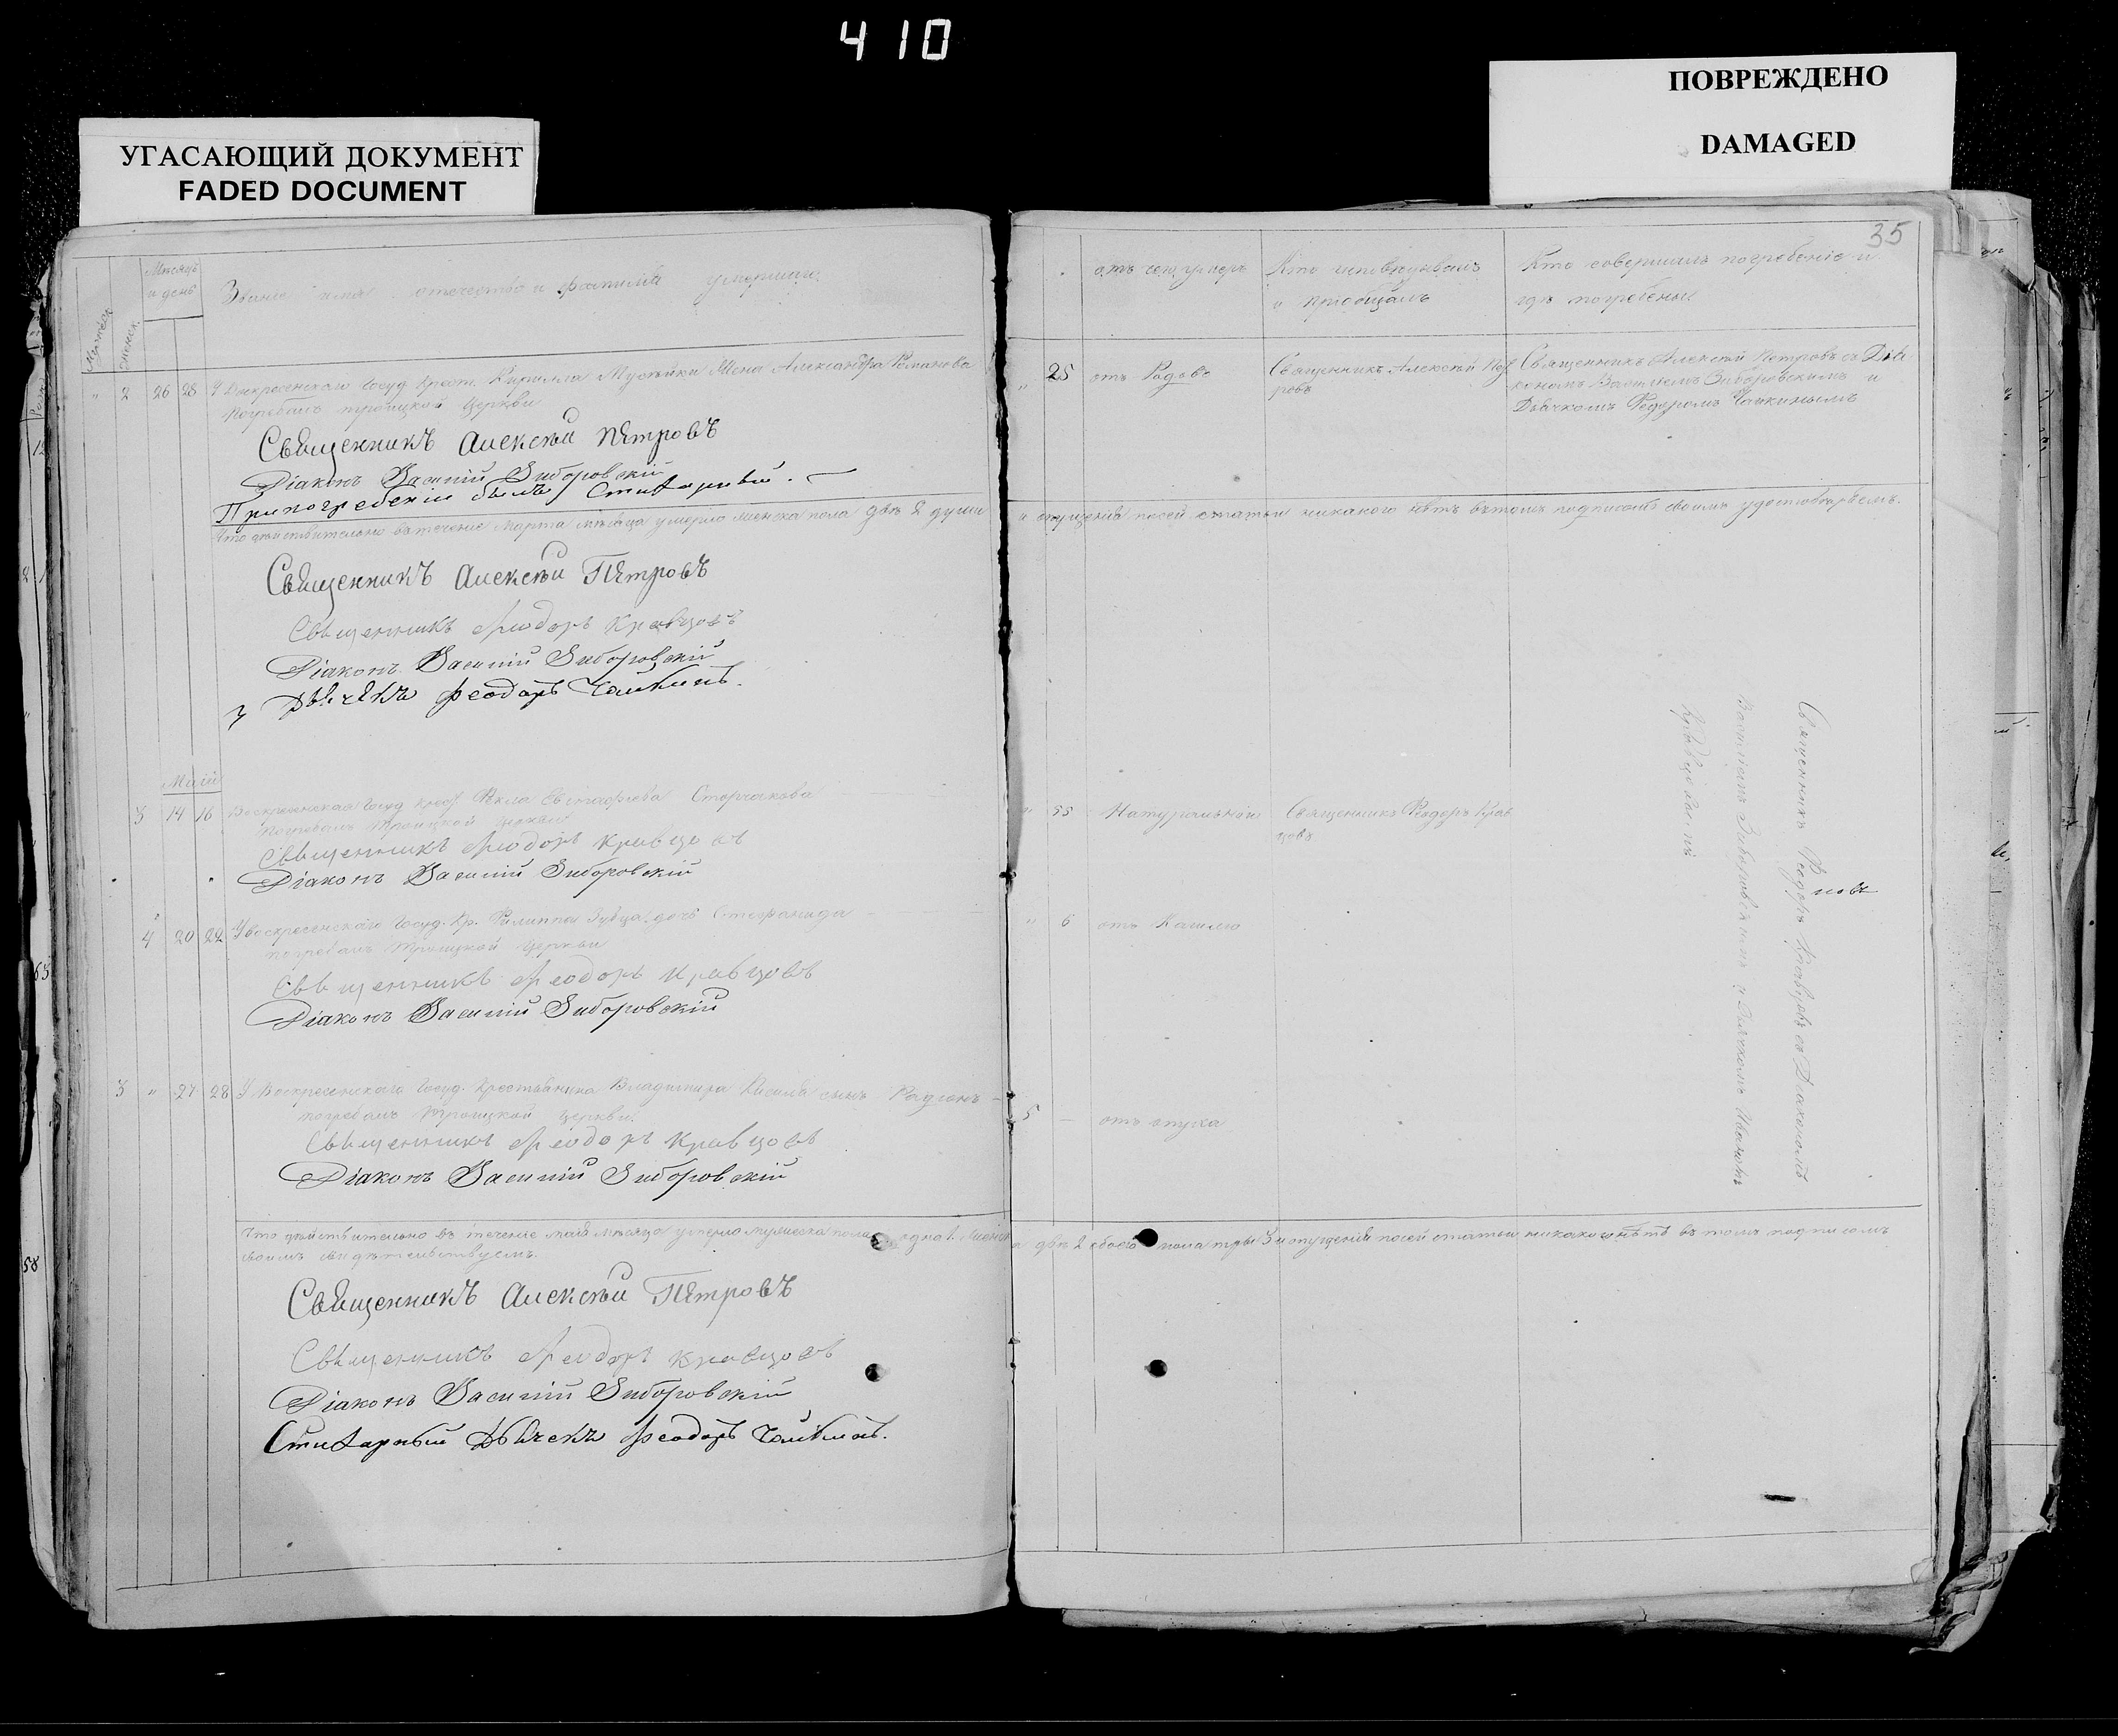 410
УГАСАЮЩИЙ ДОКУМЕНТ
FADED DOCUMENT
ПОВРЕЖДЕНО
DAMAGED
35
Мѣсяцъ
и день
Званіе имя отечество и фамилія умершаго.
женск.
отъ чего умеръ
Кто исповѣдывалъ
и пріобщалъ
Кто совершалъ погребеніе и
гдѣ погребены.
" 2 26 28 У Воскресенскаго Госуд. Крест. Кирилла Мусѣйки Жена Александра Романова
Погребалъ троицкой Церкви
Священникъ Алексѣй Пѣтровъ
Діаконъ Василій Зиборовскій
При погребеніи былъ Стихарный.
" 25 отъ Родово
Священникъ Алексѣй Пет
ровъ
Священникъ Алексѣй Петровъ съ Діа
кономъ Василіемъ Зиборовскимъ и
Дьячкомъ Федоромъ Чайкинымъ
Что дѣйствительно въ теченіе Марта мѣсяца умерло женска пола двѣ 2 души и опущенія посей статьи никакого нѣтъ въ томъ подписомъ своимъ удостовѣряемъ.
Священникъ Алексѣй Пѣтровъ
Священникъ Феодоръ Кравцовъ
Діаконъ Василій Зиборовскій
Дьячекъ Феодоръ Чайкинъ.
Маій
3 14 16 Воскресенская Госуд. крест. Ѳекла Евстафіева
Погребалъ Троицкой Церкви
Священникъ Феодоръ Кравцовъ
Діаконъ Василій Зиборовскій
" 55 Натуральной
Священникъ Федоръ Крав
цовъ
4 20 22 У Воскресенскаго Госуд. Кр. Филиппа Зубца дочь Стефанида
погребалъ Троицкой Церкви
Священникъ Феодоръ Кравцовъ
Діаконъ Василій Зиборовскій
" 6 отъ Кашлю
3 " 27 28 У Воскресенскаго Госуд. Крестьянина Владимира сынъ Радіонъ
погребалъ Троицкой Церкви.
Священникъ Феодоръ Кравцовъ
Діаконъ Василій Зиборовскій
5 — отъ опуха
Священникъ Федоръ Кравцовъ съ Діакономъ
Василіемъ Зиборовскимъ и Дьячкомъ
Что дѣйствительно въ теченіе маія мѣсяца умерло мужеска пола одно 1. Женска двѣ 2 обоего пола три 3 и опущенія посей статьи никакого нѣтъ въ томъ подписомъ
своимъ свидѣтельствуемъ.
Священникъ Алексѣй Пѣтровъ
Священникъ Феодоръ Кравцовъ
Діаконъ Василій Зиборовскій
Стихарный Дьячекъ Феодоръ Чайкинъ.